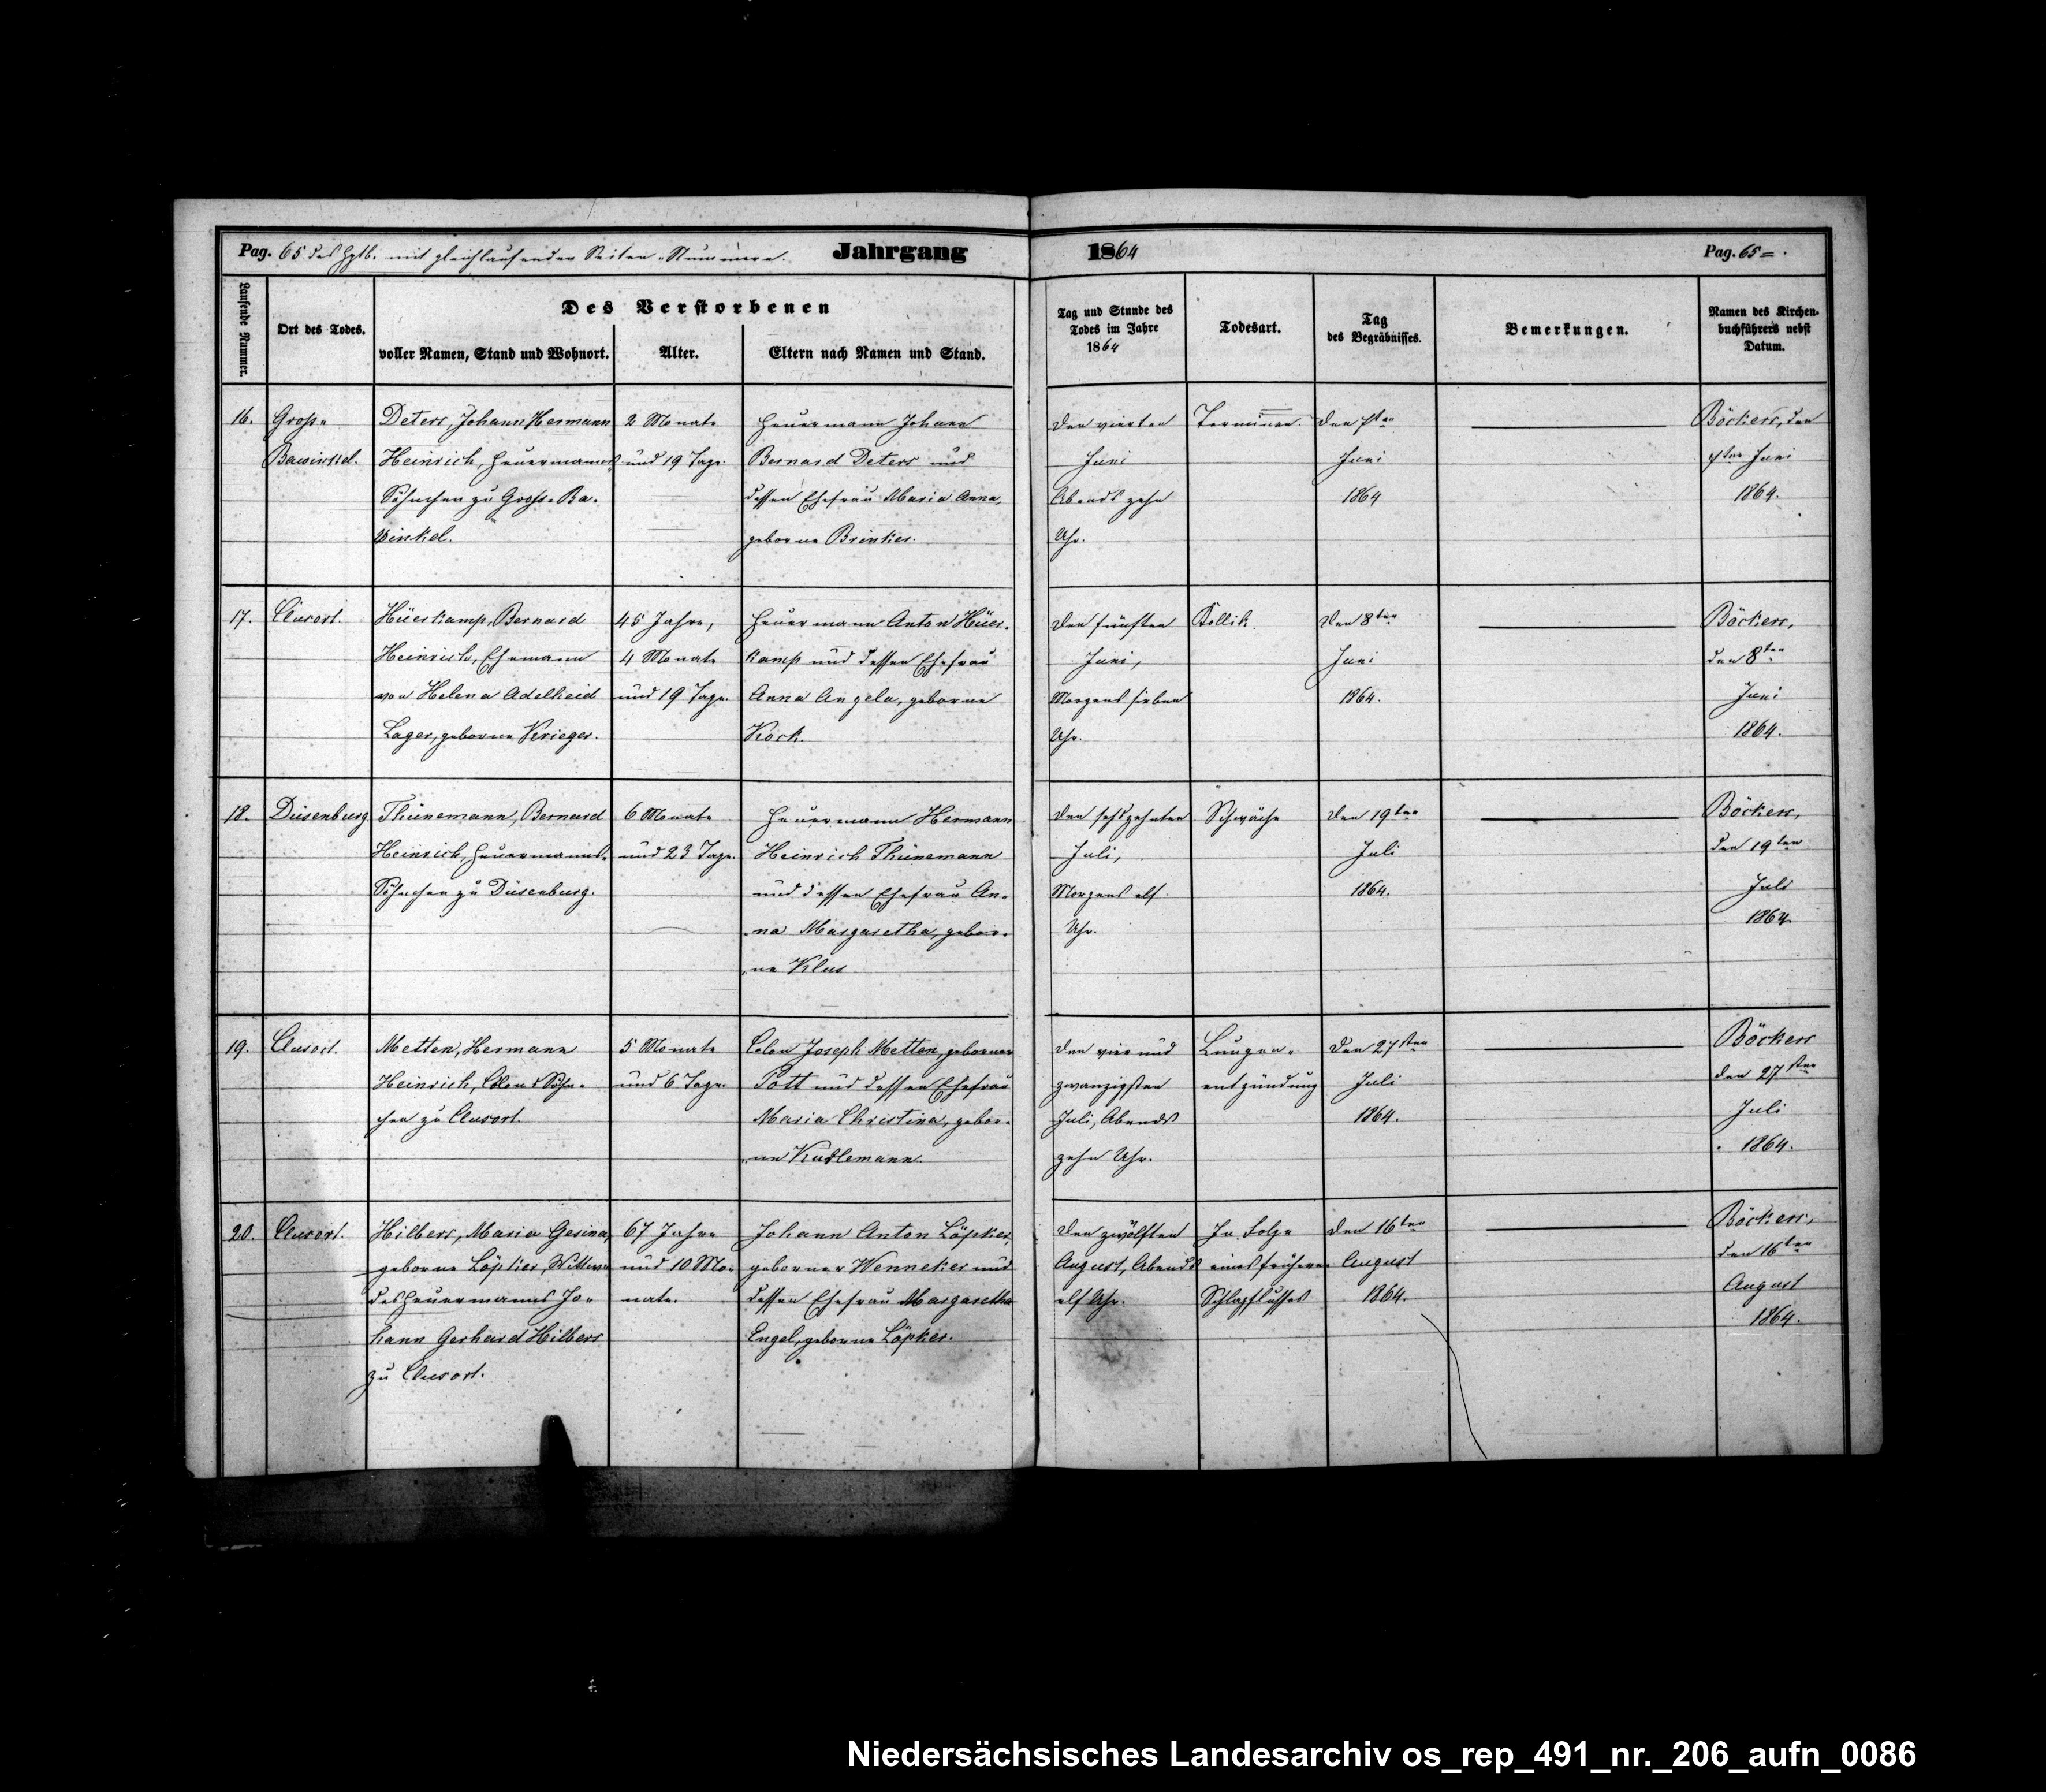 Pag. 65 des Hptb. mit gleichlaufender Seiten-Nummer. Jahrgang 1864 Pag. 65
Laufende Nummer.
Ort des Todes.
Des Verstorbenen
voller Namen, Stand und Wohnort.
Alter.
Eltern nach Namen und Stand.
Tag und Stunde des
Todes im Jahre
1864
Todesart.
Tag
des Begräbnisses.
Bemerkungen.
Namen des Kirchen-
buchführers nebst
Datum.
16.
Gross-
Bawinkel.
Deters, Johann Hermann
Heinrich, Heuermanns
Söhnchen zu Gross-Ba-
winkel.
2 Monate
und 19 Tage.
Heuermann Johann
Bernard Deters und
dessen Ehefrau Maria Anna,
geborne Brinker.
Den vierten
Juni
Abends zehn
Uhr.
Den 7ten
Juni
1864
Böckers, den
7ten Juni
1864.
17.
Clusort.
Hüerkamp, Bernard
Heinrich, Ehemann
von Helena Adelheid
Lager, geborne Krieger.
45 Jahre,
4 Monate
und 19 Tage.
Heuermann Anton Hüer-
kamp und dessen Ehefrau
Anna Angela, geborne
Köck.
Den fünften
Juni,
Morgens sieben
Uhr.
Kollik.
Den 8ten
Juni
1864.
Böckers,
den 8ten
Juni
1864.
18.
Düsenburg
Thünemann, Bernard
Heinrich, Heuermanns-
Söhnchen zu Düsenburg.
6 Monate
und 23 Tage.
Heuermann Hermann
Heinrich Thünemann
und dessen Ehefrau An-
na Margaretha, gebor-
ne Klus
Den sechszehnten
Juli,
Morgens elf
Uhr.
Schwäche
Den 19ten
Juli
1864.
Böckers,
den 19ten
Juli
1864.
19.
Clusort.
Metten, Hermann
Heinrich, Colons Söhn-
chen zu Clusort.
5 Monate
und 6 Tage.
Colon Joseph Metten, geborner
Pott und dessen Ehefrau
Maria Christina, gebor-
ne
Den vier und
zwanzigsten
Juli, Abends
zehn Uhr.
Lungen-
entzündung
Den 27sten
Juli
1864.
Böckers
den 27sten
Juli
1864.
20.
Clusort.
Hilbers, Maria Gesina,
geborne Löpker, Wittwe
des Heuermanns Jo-
hann Gerhard Hilbers
zu Clusort.
67 Jahre
und 10 Mo-
nate.
Johann Anton Löpker,
geborner Wenneker und
dessen Ehefrau Margaretha
Engel, geborne Löpker.
Den zwölften
August, Abends
elf Uhr.
In Folge
eines früheren
Schlagflusses
Den 16ten
August
1864.
Böckers,
den 16ten
August
1864.
Niedersächsisches Landesarchiv os_rep_491_nr._206_aufn_0086